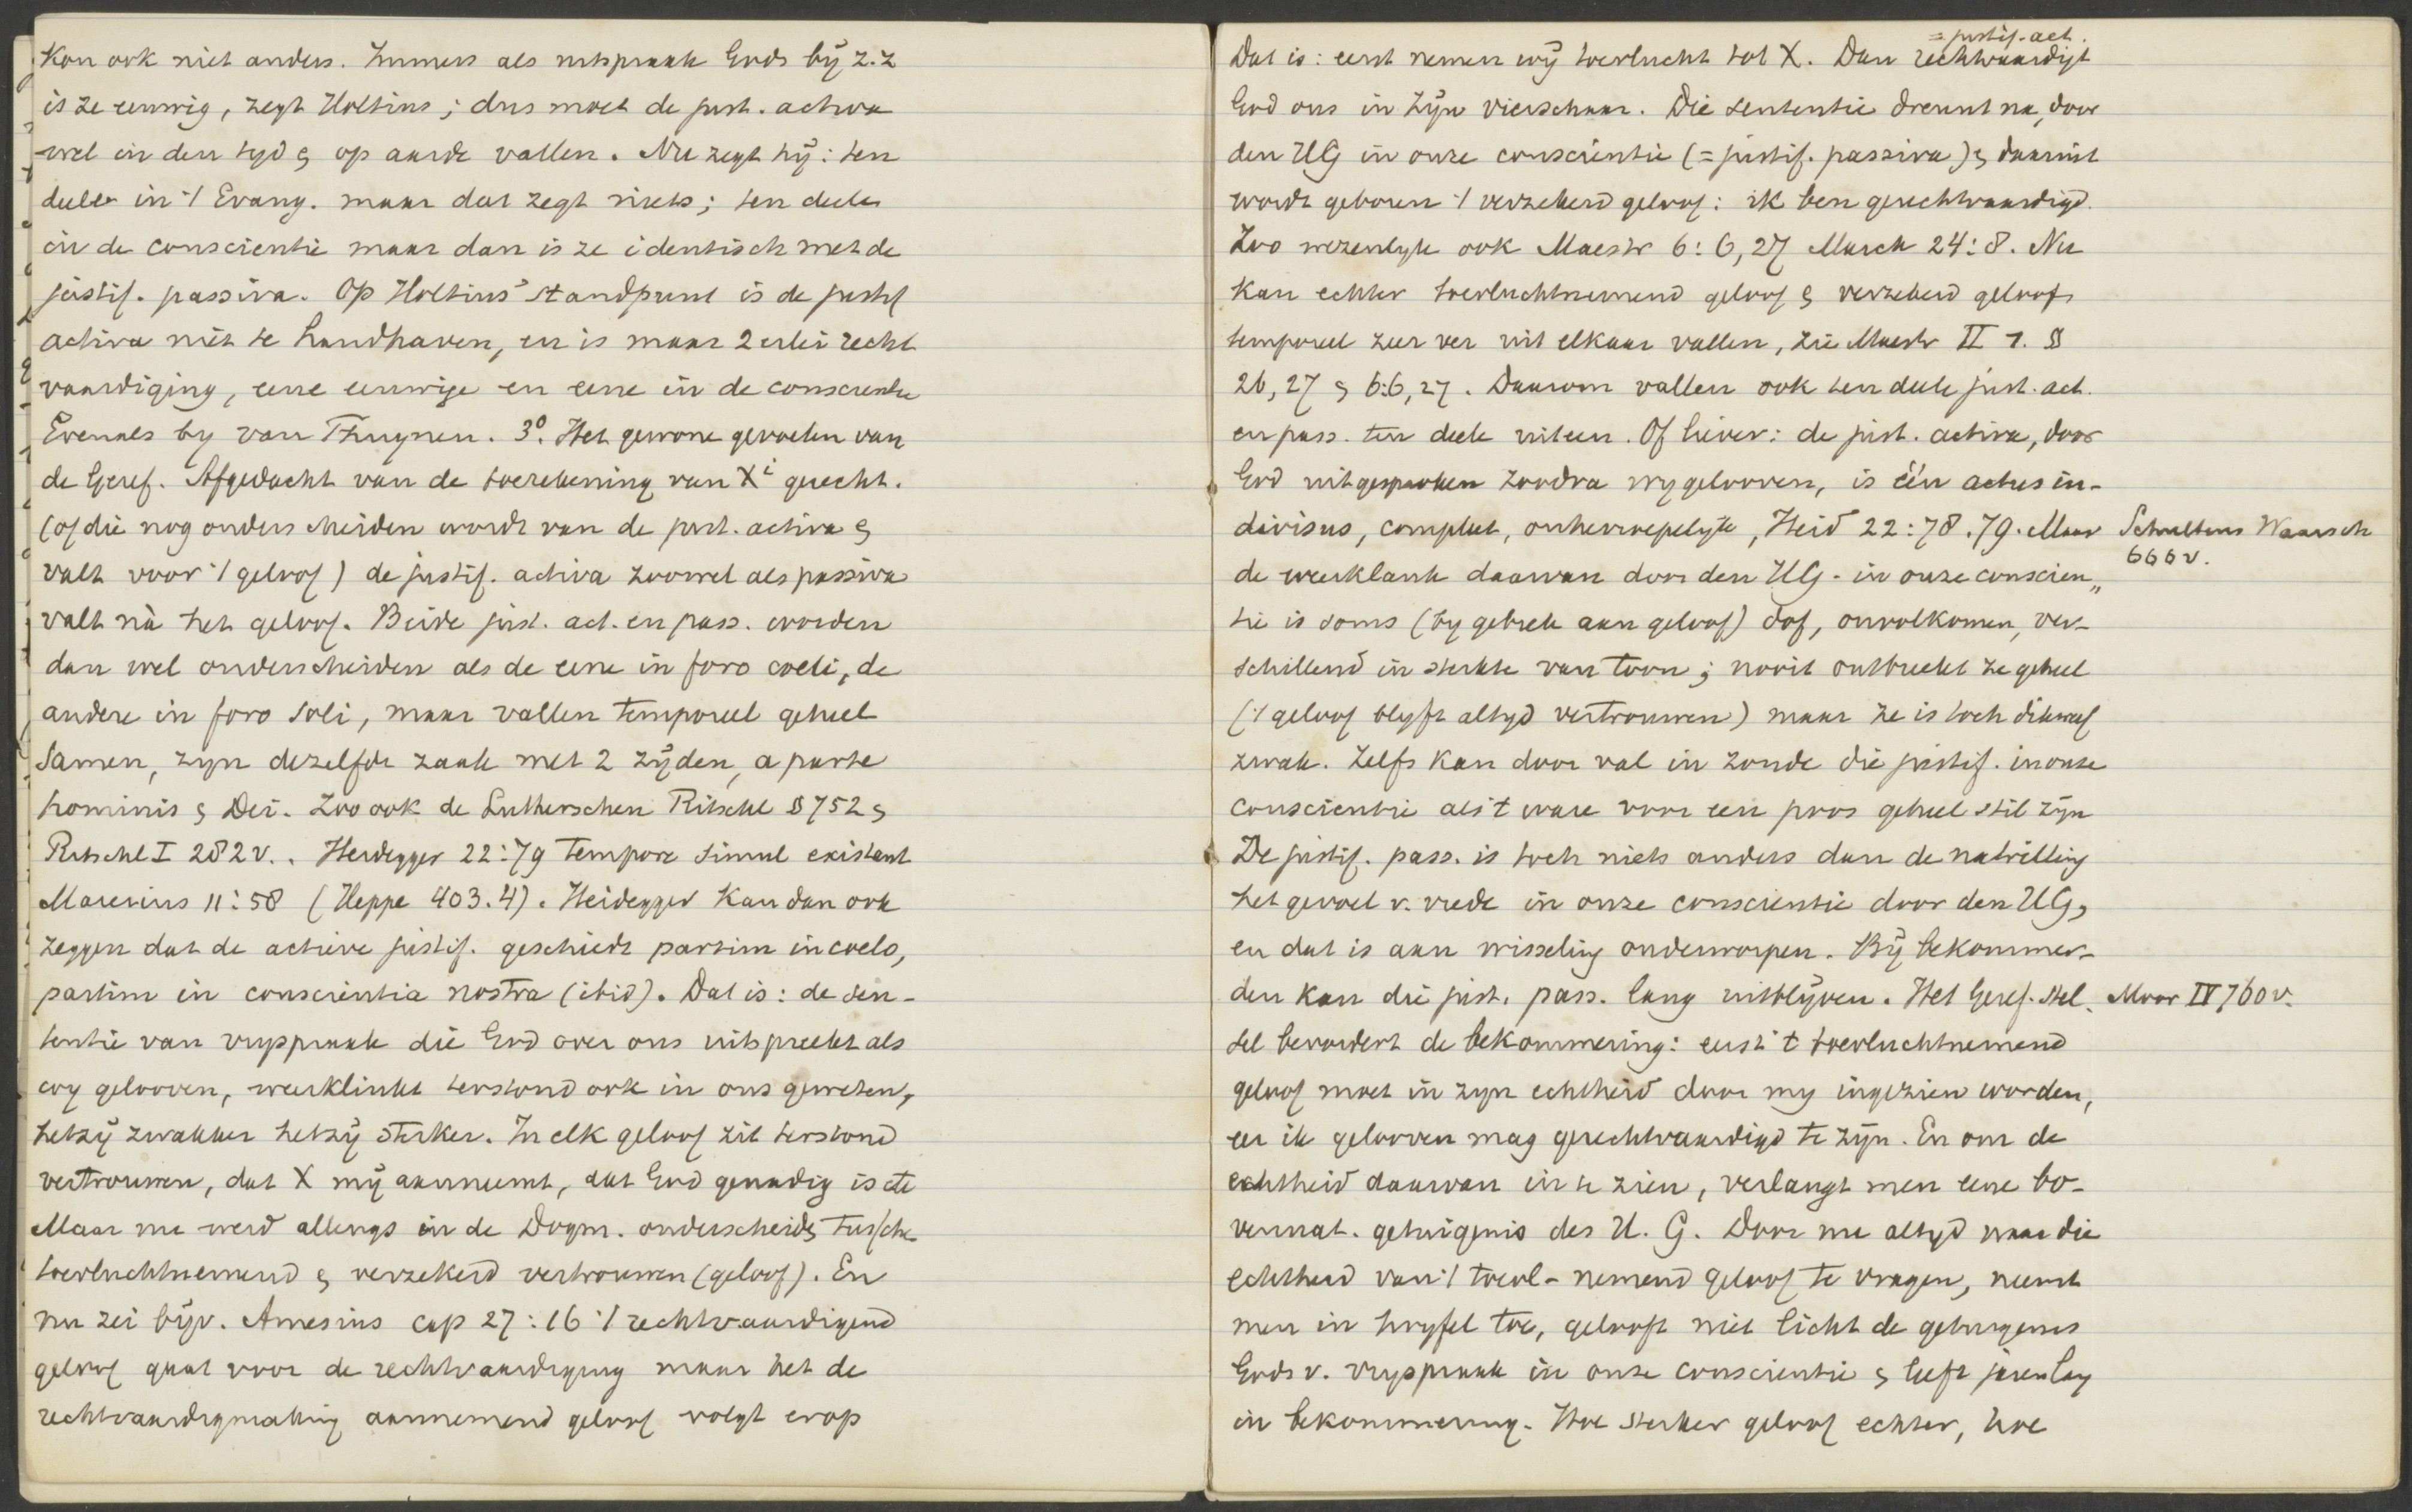 kon ook niet anders. Immers als uitspraak Gods bij z.z
is ze eeuwig, zegt Holtius; dus moet de just. activa
wel in den tijd & op aarde vallen. Nu zegt hij: ten
deele in 't Evang. maar dat zegt niets; ten deele
in de conscientie maar dan is ze identisch met de
justif. passiva. Op Holtius' standpunt is de justif
activa niet te handhaven, er is maar 2 erlei recht
vaardiging, eene eeuwige en eene in de conscientie
Evenals by van Thuynen. 3°. Het gewone gevoelen van
de Geref. Afgedacht van de toerekening van Xi gerecht.
(of die nog onderscheiden wordt van de just. activa &
valt voor 't geloof) de justif. activa zoowel als passiva
valt nà het geloof. Beide just. act. en pass. worden
dan wel onderscheiden als de eene in foro coeli, de
andere in foro soli, maar vallen temporeel geheel
samen, zyn dezelfde zaak met 2 zijden, a parte
hominis & Dei. Zoo ook de Lutherschen Ritschl § 752 &
Ritschl I 282 v.. Heidegger 22:79 tempore simul existent
Maresius 11:58 (Heppe 403.4). Heidegger kan dan ook
zeggen dat de actieve justif. geschiedt partim in coelo,
partim in conscientia nostra (ibid). Dat is: de sen-
tentie van vryspraak die God over ons uitspreekt als
wy gelooven, weerklinkt terstond ook in ons geweten,
hetzij zwakker hetzij sterker. In elk geloof zit terstond
vertrouwen, dat X mij aanneemt, dat God genadig is etc
Maar nu werd allengs in de Dogm. onderscheids tussche
toevluchtnemend & verzekerd vertrouwen (geloof). En
nu zei bijv. Amesius cap 27:16 't rechtvaardigend
geloof gaat voor de rechtvaardiging maar het de
rechtvaardigmaking aannemend geloof volgt erop
= justif. act.
Dat is: eerst nemen wij toevlucht tot X. Dan rechtvaardigt
God ons in zijn vierschaar. Die sententie dreunt na, door
den HG in onze conscientie (= justif. passiva) & daaruit
wordt geboren 't verzekerd geloof: ik ben gerechtvaardigd.
Zoo wezenlyk ook Maestr 6:6,27 Marck 24:8. Nu
kan echter toevluchtnemend geloof & verzekerd geloof
temporeel zeer ver uit elkaar vallen, zie Maestr II 1. §
26, 27 & 6:6, 27. Daarom vallen ook ten deele just. act.
en pass. ten deele uiteen. Of liever: de just. activa, door
God uitgesproken zoodra wy gelooven, is één actus in-
divisus, compleet, onherroepelijk, Heid 22:78.79. Maar
Schultens Waarsch
666 v.
de weerklank daarvan door den HG. in onze conscien„
tie is soms (by gebrek aan geloof) dof, onvolkomen, ver-
schillend in sterkte van toon; nooit ontbreekt ze geheel
('t geloof blyft altyd vertrouwen) maar ze is toch dikwerf
zwak. Zelfs kan door val in zonde die justif. in onze
conscientie als 't ware voor een poos geheel stil zijn
De justif. pass. is toch niets anders dan de natrilling
het gevoel v. vrede in onze conscientie door den HG,
en dat is aan wisseling onderworpen. Bij bekommer-
den kan die just. pass. lang uitblijven. Het Geref. stel-
Moor IV 760 v.
sel bevordert de bekommering: eerst 't toevluchtnemend
geloof moet in zyn echtheid door my ingezien worden,
eer ik gelooven mag gerechtvaardigd te zijn. En om de
echtheid daarvan in te zien, verlangt men eene bo-
vennat. getuigenis des H. G. Door nu altyd naar die
echtheid van 't toevl- nemend geloof te vragen, neemt
men in twyfel toe, gelooft niet licht de getuigenis
Gods v. vryspraak in onze conscientie & leeft jarenlang
in bekommering. Hoe sterker geloof echter, hoe